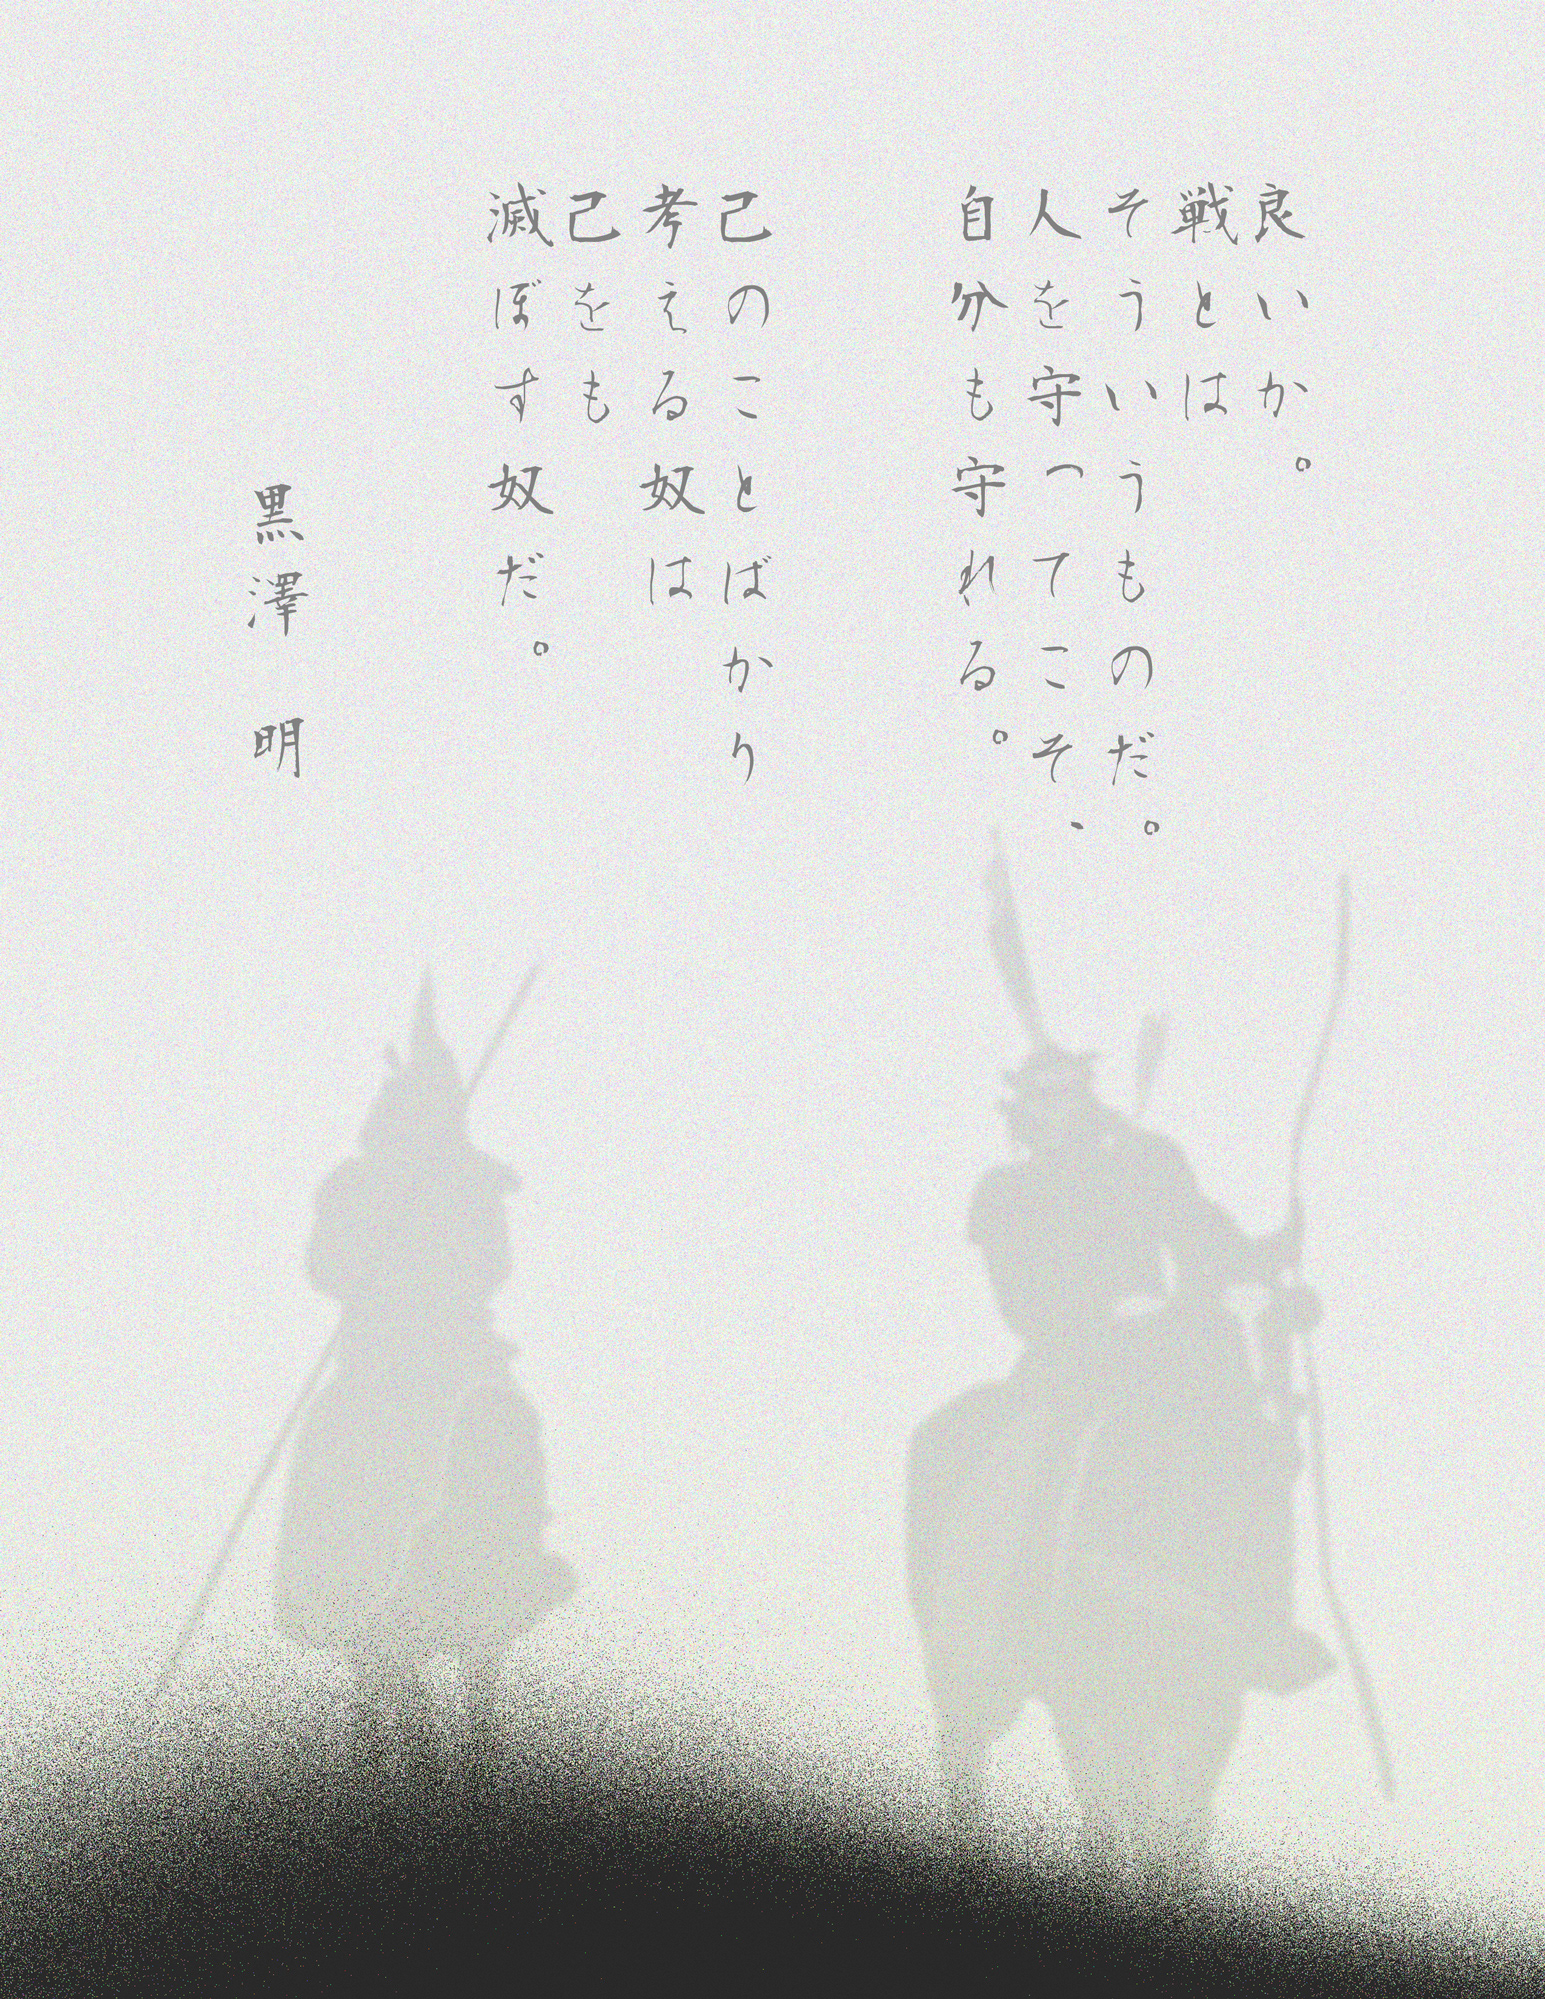 良いか。
戦とは
そういうものだ。
人を守ってこそ、
自分も守れる。
己のことばかり
考える奴は
己をも
滅ぼす奴だ。
黒澤 明